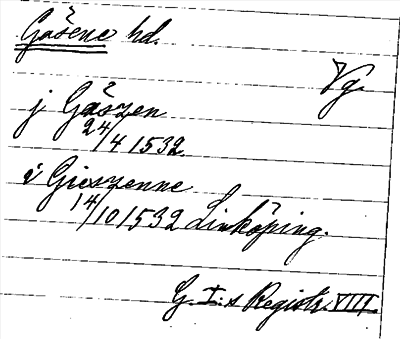 Gåsene hd.
Vg.
j Gåszen
24/4 1532
i Gieszenne
14/10 1532 Linköping.
G. I:s Registr. VIII